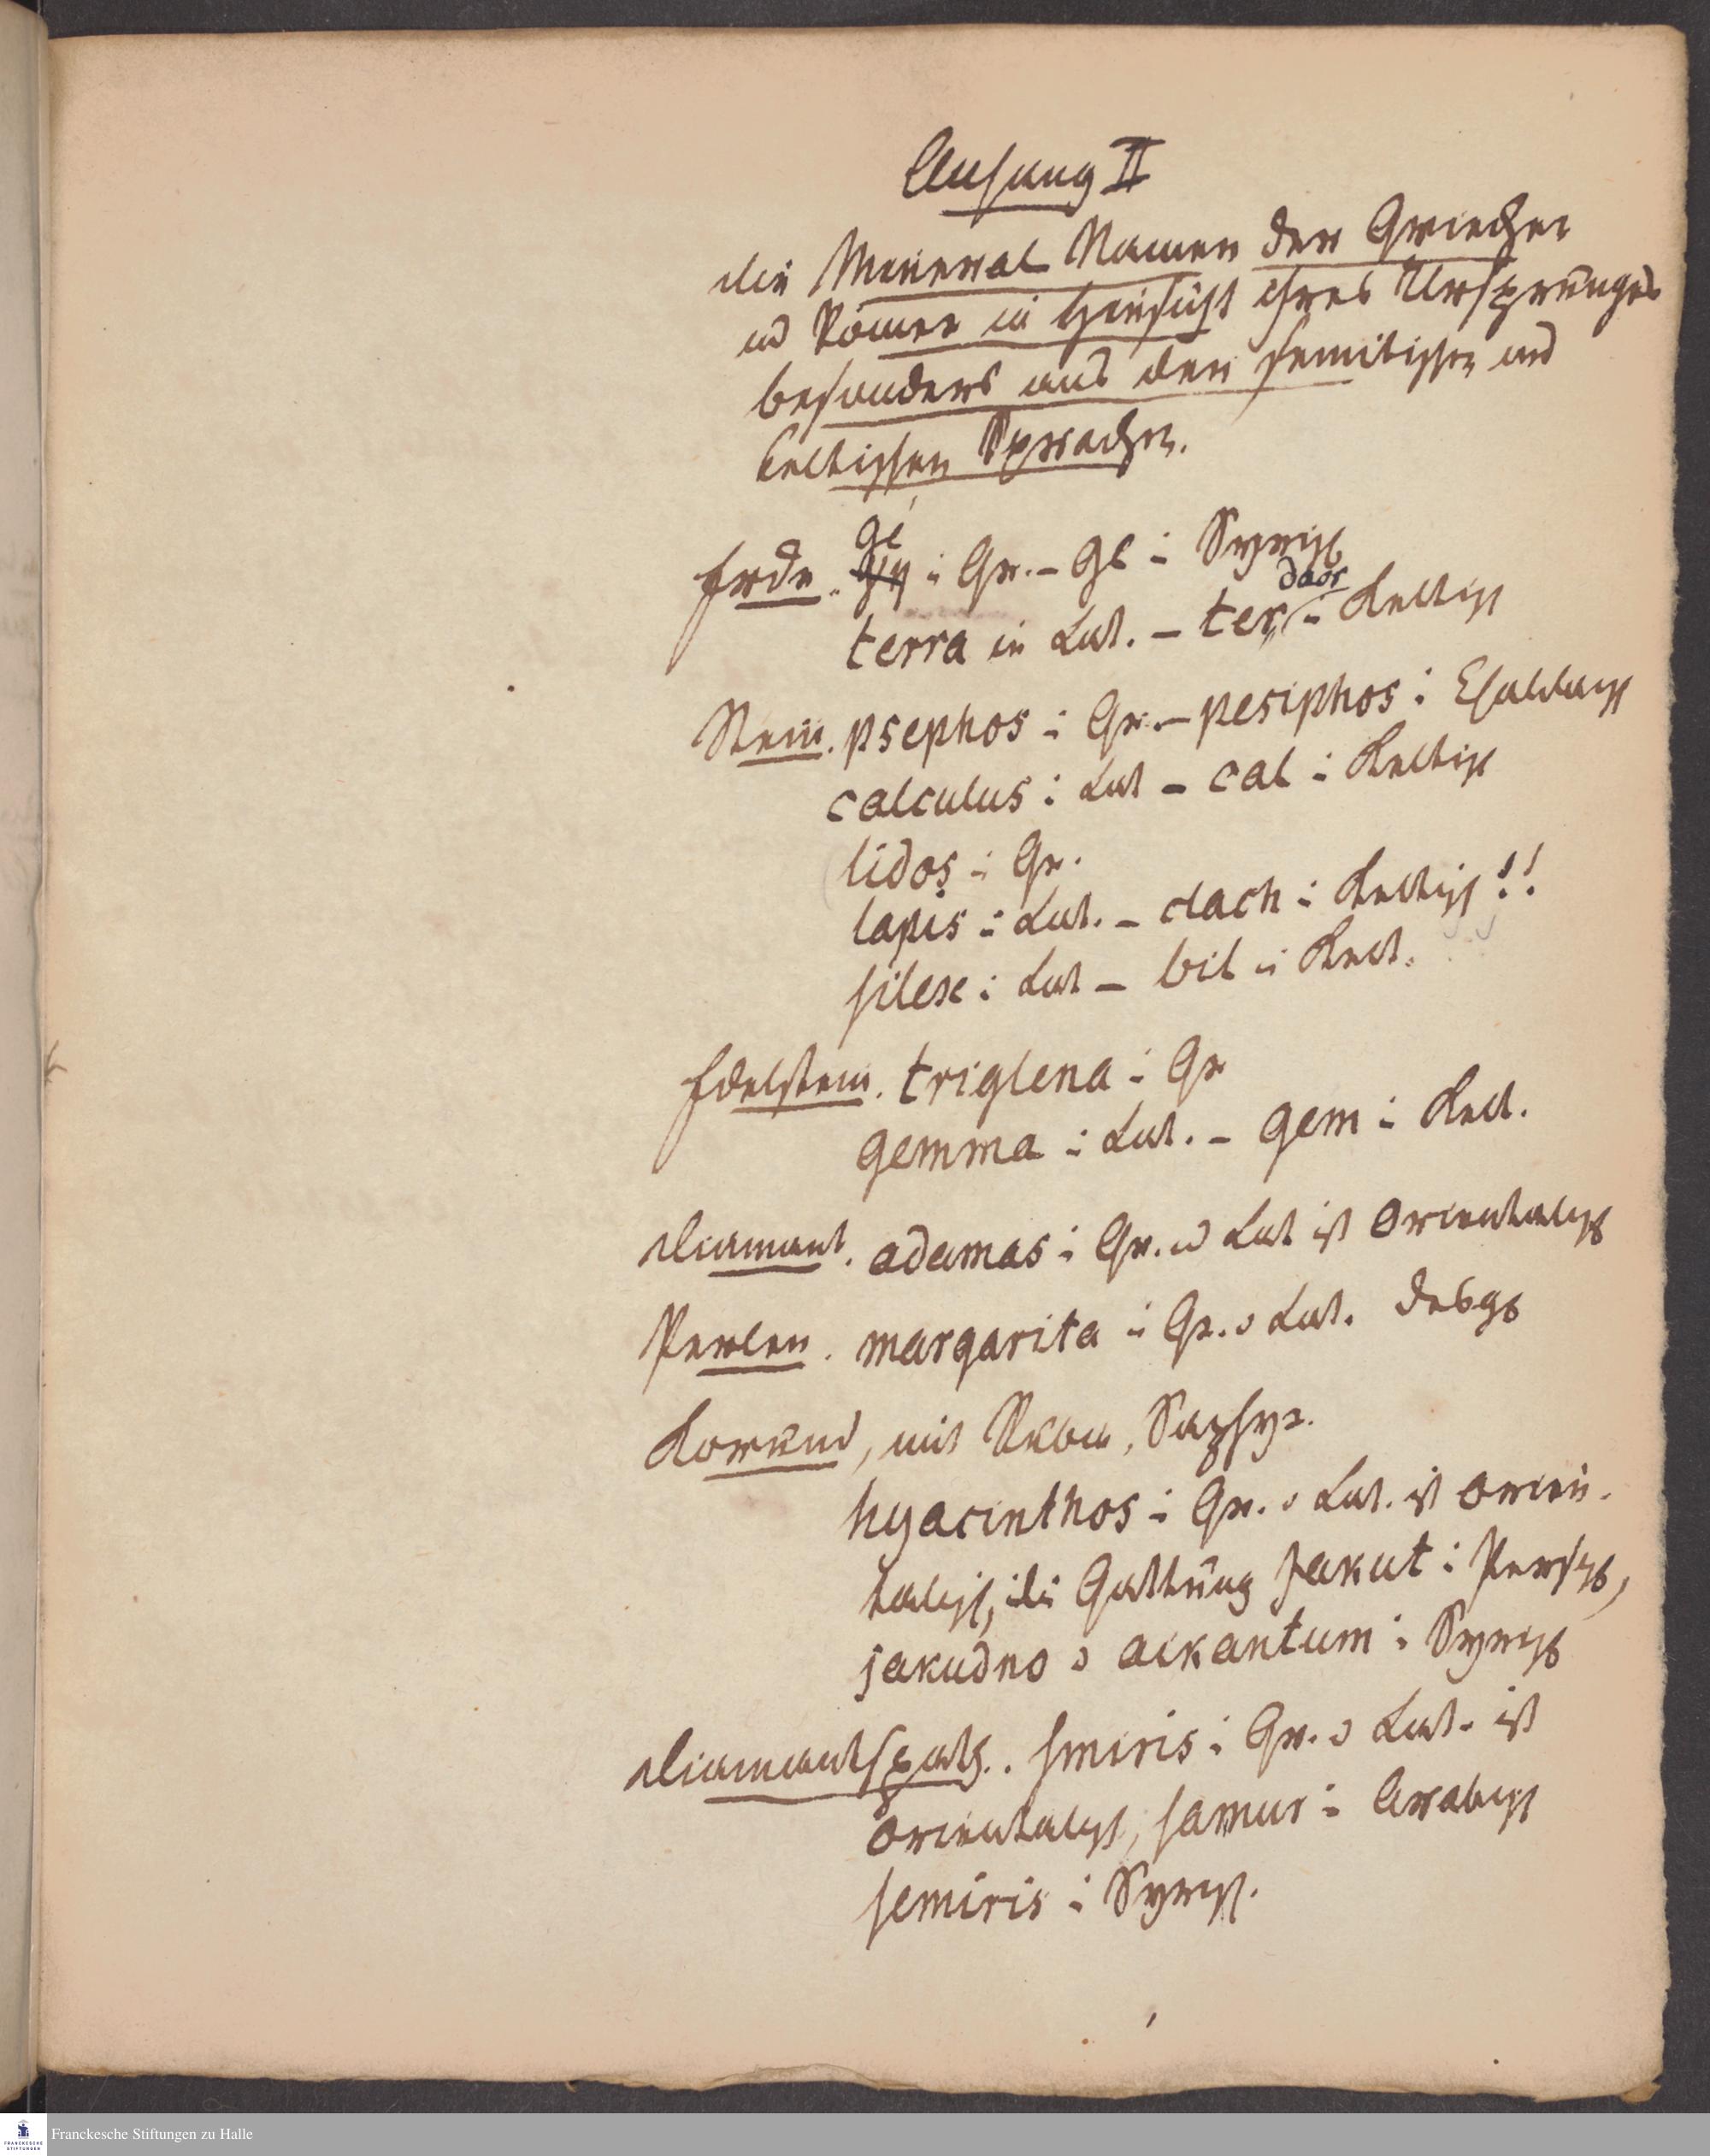 Anhang II
die Mineral Namen der Griechen
und Römer in Hinsicht ihres Ursprunges
besonders aus den semitischen und
keltischen Sprachen.
Erde. gé i Gr. – ge i Syrisch
terra in Lat. – ter, daor i Keltisch
Stein. psephos i Gr. – pesiphos i Chaldaisch
calculus i Lat – cal i Keltisch
lidos i Gr.
lapis i Lat. – clach i Keltisch!!
silex i Lat – bil i Kelt.
Edelstein. triglena i Gr
gemma i Lat. – gem i Kelt.
Diamant. adamas i Gr. u Lat ist orientalisch
Perlen. margarita i Gr. u Lat. desgl
Korund, mit Rubin, Saphyr.
hyacinthos i Gr. u Lat. ist orien-
talisch, die Gattung Jakut i Persisch,
jakudno u aikantum i Syrisch
Diamantspath. smiris i Gr. u Lat. ist
orientalisch, samur i Arabisch
semiris i Syrisch.
FRANCKESCHE STIFTUNGEN
Franckesche Stiftungen zu Halle